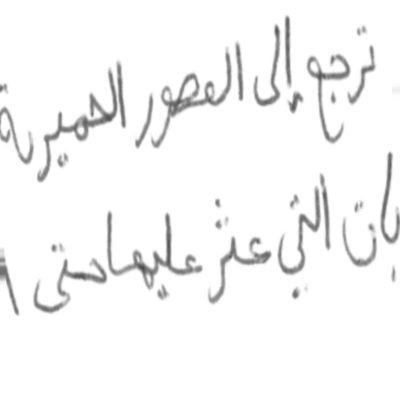 ترجع إلى العصور الحميرية
التي عثر عليها حتى